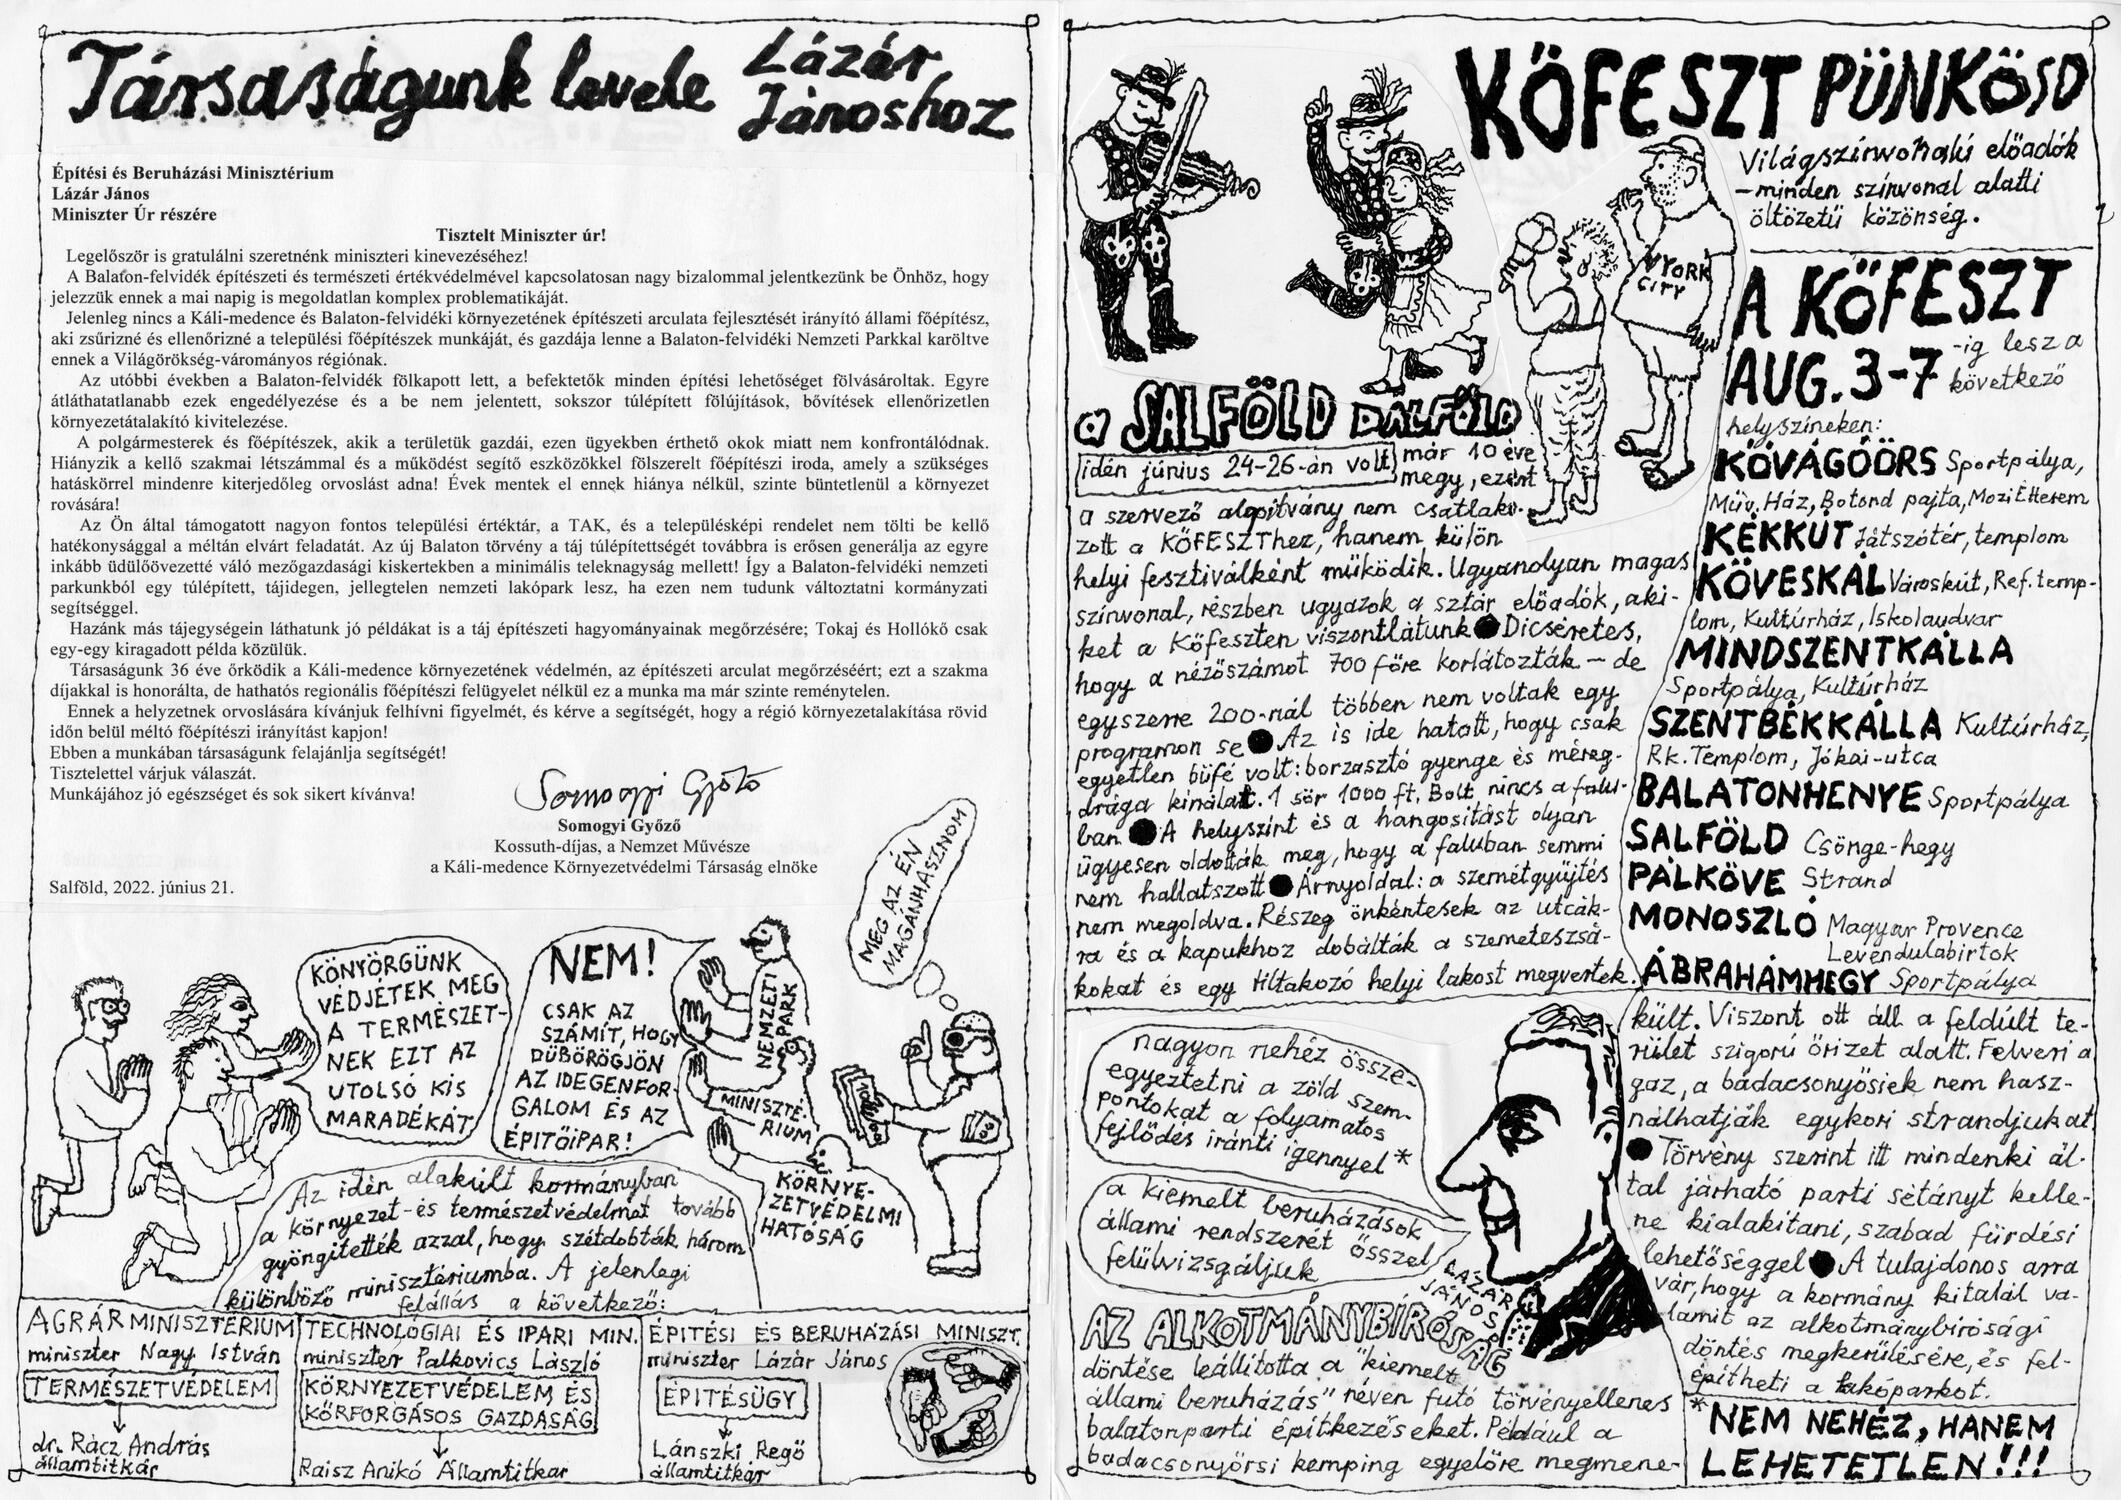 Társaságunk levele Lázár
Jánoshoz
Építési és Beruházási Minisztérium
Lázár János
Miniszter Úr részére
Tisztelt Miniszter úr!
Legelőször is gratulálni szeretnénk miniszteri kinevezéséhez!
A Balaton-felvidék építészeti és természeti értékvédelmével kapcsolatosan nagy bizalommal jelentkezünk be Önhöz, hogy
jelezzük ennek a mai napig is megoldatlan komplex problematikáját.
Jelenleg nincs a Káli-medence és Balaton-felvidéki környezetének építészeti arculata fejlesztését irányító állami főépítész,
aki zsűrizné és ellenőrizné a települési főépítészek munkáját, és gazdája lenne a Balaton-felvidéki Nemzeti Parkkal karöltve
ennek a Világörökség-várományos régiónak.
Az utóbbi években a Balaton-felvidék fölkapott lett, a befektetők minden építési lehetőséget fölvásároltak. Egyre
átláthatatlanabb ezek engedélyezése és a be nem jelentett, sokszor túlépített fölújítások, bővítések ellenőrizetlen
környezetátalakító kivitelezése.
A polgármesterek és főépítészek, akik a területük gazdái, ezen ügyekben érthető okok miatt nem konfrontálódnak.
Hiányzik a kellő szakmai létszámmal és a működést segítő eszközökkel fölszerelt főépítészi iroda, amely a szükséges
hatáskörrel mindenre kiterjedőleg orvoslást adna! Évek mentek el ennek hiánya nélkül, szinte büntetlenül a környezet
rovására!
Az Ön által támogatott nagyon fontos települési értéktár, a TAK, és a településképi rendelet nem tölti be kellő
hatékonysággal a méltán elvárt feladatát. Az új Balaton törvény a táj túlépítettségét továbbra is erősen generálja az egyre
inkább üdülőövezetté váló mezőgazdasági kiskertekben a minimális teleknagyság mellett! Így a Balaton-felvidéki nemzeti
parkunkból egy túlépített, tájidegen, jellegtelen nemzeti lakópark lesz, ha ezen nem tudunk változtatni kormányzati
segítséggel.
Hazánk más tájegységein láthatunk jó példákat is a táj építészeti hagyományainak megőrzésére; Tokaj és Hollókő csak
egy-egy kiragadott példa közülük.
Társaságunk 36 éve őrködik a Káli-medence környezetének védelmén, az építészeti arculat megőrzéséért; ezt a szakma
díjakkal is honorálta, de hathatós regionális főépítészi felügyelet nélkül ez a munka ma már szinte reménytelen.
Ennek a helyzetnek orvoslására kívánjuk felhívni figyelmét, és kérve a segítségét, hogy a régió környezetalakítása rövid
időn belül méltó főépítészi irányítást kapjon!
Ebben a munkában társaságunk felajánlja segítségét!
Tisztelettel várjuk válaszát.
Munkájához jó egészséget és sok sikert kívánva!
Somogyi Győző
Somogyi Győző
Kossuth-díjas, a Nemzet Művésze
a Káli-medence Környezetvédelmi Társaság elnöke
Salföld, 2022. június 21.
MEG AZ ÉN
MAGÁNHASZNOM
KÖNYÖRGÜNK
VÉDJÉTEK MEG
A TERMÉSZET-
NEK EZT AZ
UTOLSÓ KIS
MARADÉKÁT
NEM!
CSAK AZ
SZÁMÍT, HOGY
DÜBÖRÖGJÖN
AZ IDEGENFOR-
GALOM ÉS AZ
ÉPÍTŐIPAR!
NEMZETI
PARK
MINISZTÉ-
RIUM
KÖRNYE-
ZETVÉDELMI
HATÓSÁG
Az idén alakult kormányban
a környezet- és természetvédelmet tovább
gyöngítették azzal, hogy szétdobták három
különböző minisztériumba. A jelenlegi
felállás a következő:
AGRÁRMINISZTÉRIUM
miniszter Nagy István
TERMÉSZETVÉDELEM
dr. Rácz András
államtitkár
TECHNOLÓGIAI ÉS IPARI MIN.
miniszter Palkovics László
KÖRNYEZETVÉDELEM ÉS
KÖRFORGÁSOS GAZDASÁG
Raisz Anikó Államtitkár
ÉPITÉSI ÉS BERUHÁZÁSI MINISZT.
miniszter Lázár János
ÉPITÉSÜGY
Lánszki Regő
államtitkár
KŐFESZT PÜNKÖSD
Világszínvonalú előadók
- minden színvonal alatti
öltözetű közönség.
YORK
CITY
a SALFÖLD DALFÖLD
idén június 24-26-án volt már 10 éve
megy, ezért
a szervező alapítvány nem csatlako-
zott a KŐFESZThez, hanem külön
helyi fesztiválként működik. Ugyanolyan magas
színvonal, részben ugyazok a sztár előadók, aki-
ket a Kőfeszten viszontlátunk ● Dicséretes,
hogy a nézőszámot 700 főre korlátozták - de
egyszerre 200-nál többen nem voltak egy
programon se ● Az is ide hatott, hogy csak
egyetlen büfé volt: borzasztó gyenge és méreg-
drága kínálat. 1 sör 1000 ft. Bolt nincs a falu-
ban ● A helyszínt és a hangosítást olyan
ügyesen oldották meg, hogy a faluban semmi
nem hallatszott ● Árnyoldal: a szemétgyűjtés
nem megoldva. Részeg önkéntesek az utcák-
ra és a kapukhoz dobálták a szemeteszsá-
kokat és egy tiltakozó helyi lakost megvertek.
A KŐFESZT
AUG. 3-7 -ig lesz a
következő
helyszíneken:
KŐVÁGÓÖRS Sportpálya,
Műv. Ház, Botond pajta, Mozi Étterem
KÉKKÚT Játszótér, templom
KÖVESKÁL Városkút, Ref. temp-
lom, Kultúrház, Iskolaudvar
MINDSZENTKÁLLA
Sportpálya, Kultúrház
SZENTBÉKKÁLLA Kultúrház,
Rk. Templom, Jókai-utca
BALATONHENYE Sportpálya
SALFÖLD Csönge-hegy
PÁLKÖVE Strand
MONOSZLÓ Magyar Provence
Levendulabirtok
ÁBRAHÁMHEGY Sportpálya
nagyon nehéz össze-
egyeztetni a zöld szem-
pontokat a folyamatos
fejlődés iránti igennyel *
a kiemelt beruházások
állami rendszerét ősszel
felülvizsgáljuk
LÁZÁR
JÁNOS
AZ ALKOTMÁNYBÍRÓSÁG
döntése leállította a "kiemelt
állami beruházás" néven futó törvényellenes
balatonparti építkezéseket. Például a
badacsonyörsi kemping egyelőre megmene-
kült. Viszont ott áll a feldúlt te-
rület szigorú őrizet alatt. Felveri a
gaz, a badacsonyősiek nem hasz-
nálhatják egykori strandjukat.
● Törvény szerint itt mindenki ál-
tal járható parti sétányt kelle-
ne kialakítani, szabad fürdési
lehetőséggel ● A tulajdonos arra
vár, hogy a kormány kitalál va-
lamit az alkotmánybírósági
döntés megkerülésére, és fel-
építheti a lakóparkot.
* NEM NEHÉZ, HANEM
LEHETETLEN!!!